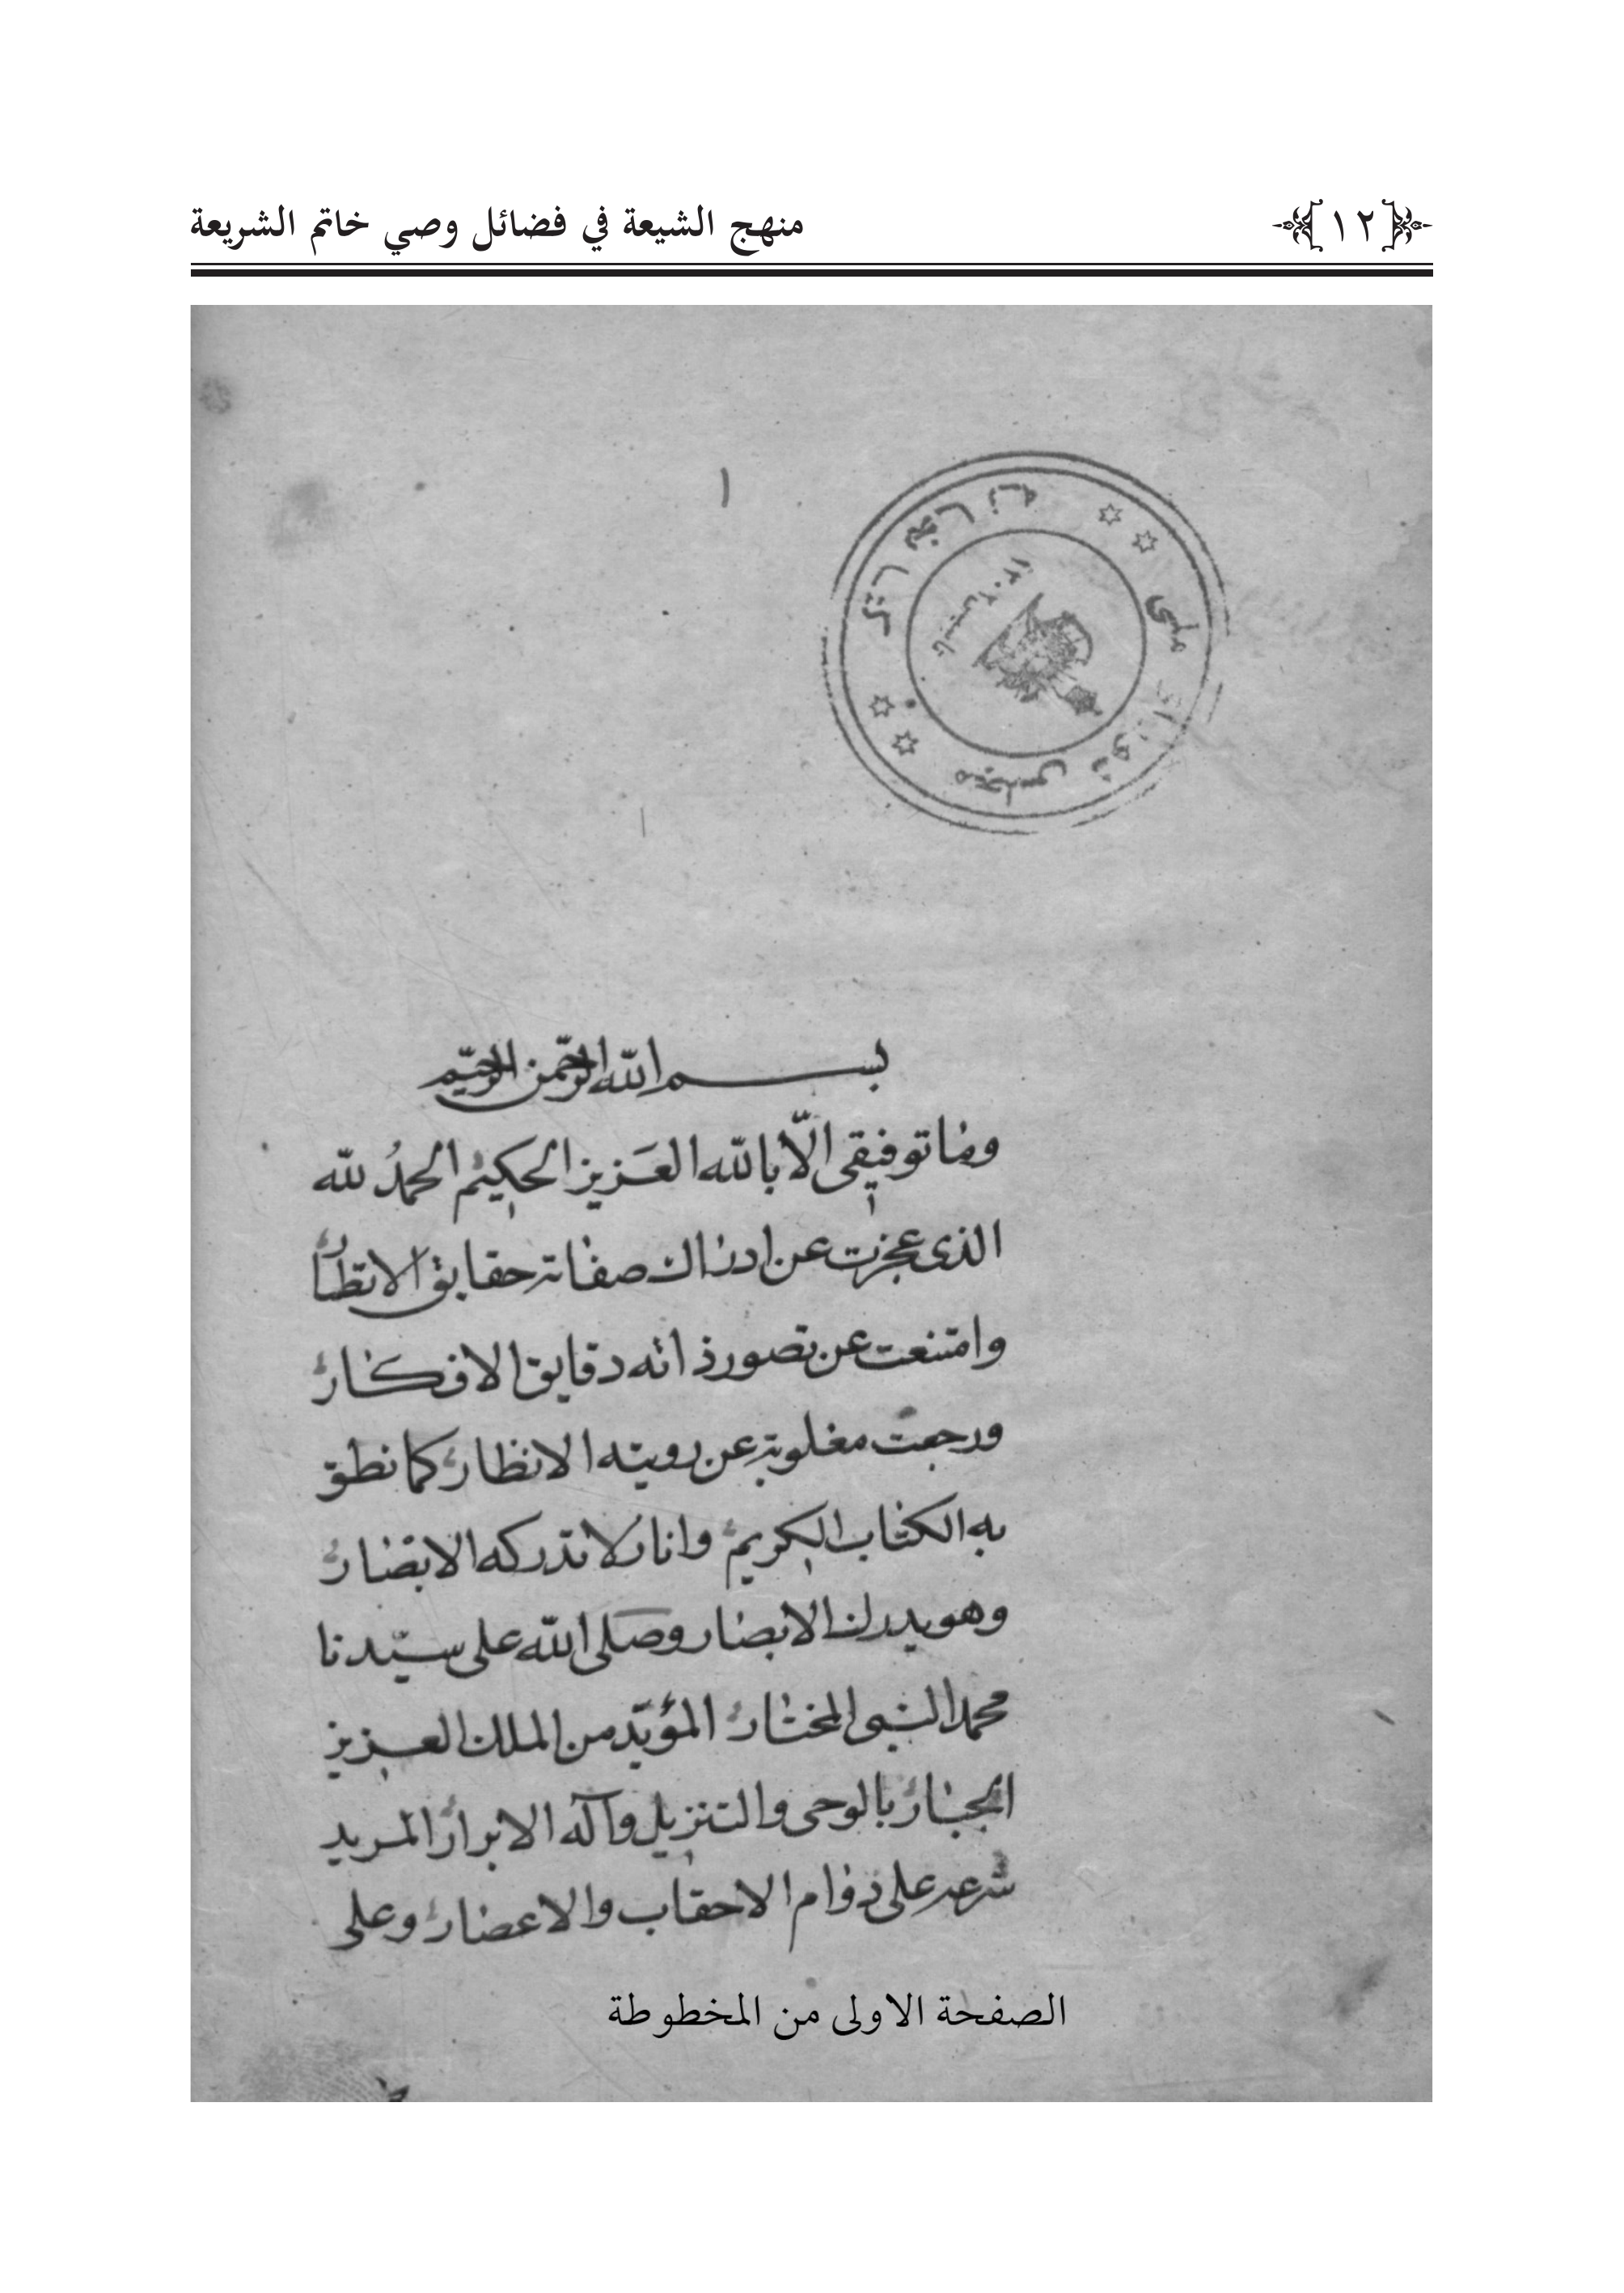 ﴿١٢﴾ منهج الشيعة في فضائل وصي خاتم الشريعة
١
كتابخانه
مجلس شورای ملی
بسم الله الرحمن الرحيم
وما توفيقى الّا بالله العَزيز الحكيم الحمدُ لله
الذى عجزت عن ادراك صفاته حقايق الانظار
وامتنعت عن تصور ذاته دقايق الافكار
ورجعت مغلوبة عن رويته الانظار كما نطق
به الكتاب الكريم لا تدركه الابصار
وهو يدرك الابصار وصلى الله على سيّدنا
محمد النبى المختار المؤيّد من الملك العزيز
الجبار بالوحى والتنزيل وآله الابرار
شرعه على دوام الاحقاب والاعصار وعلى
الصفحة الاولى من المخطوطة